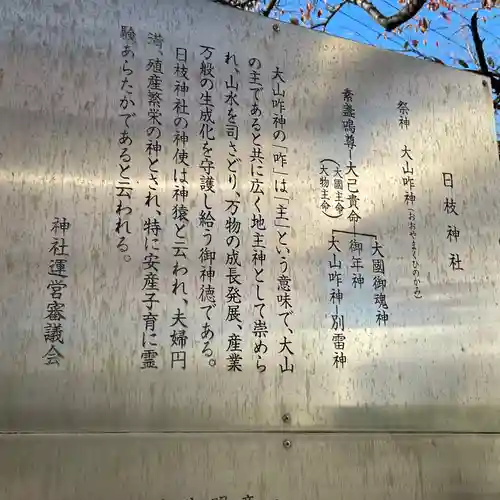 日枝神社
祭神 大山咋神(おおやまくいのかみ)
素盞鳴尊―大己貴命―御年神
(大國主命)
(大物主命)
大國御魂神
大山咋神―別雷神
大山咋神の「咋」は「主」という意味で、大山
の主であると共に広く地主神として崇めら
れ、山水を司さどり、万物の成長発展、産業
万般の生成化を守護し給う御神徳である。
日枝神社の神使は神猿と云われ、夫婦円
満、殖産繁栄の神とされ、特に安産子育に霊
験あらたかであると云われる。
神社運営審議会